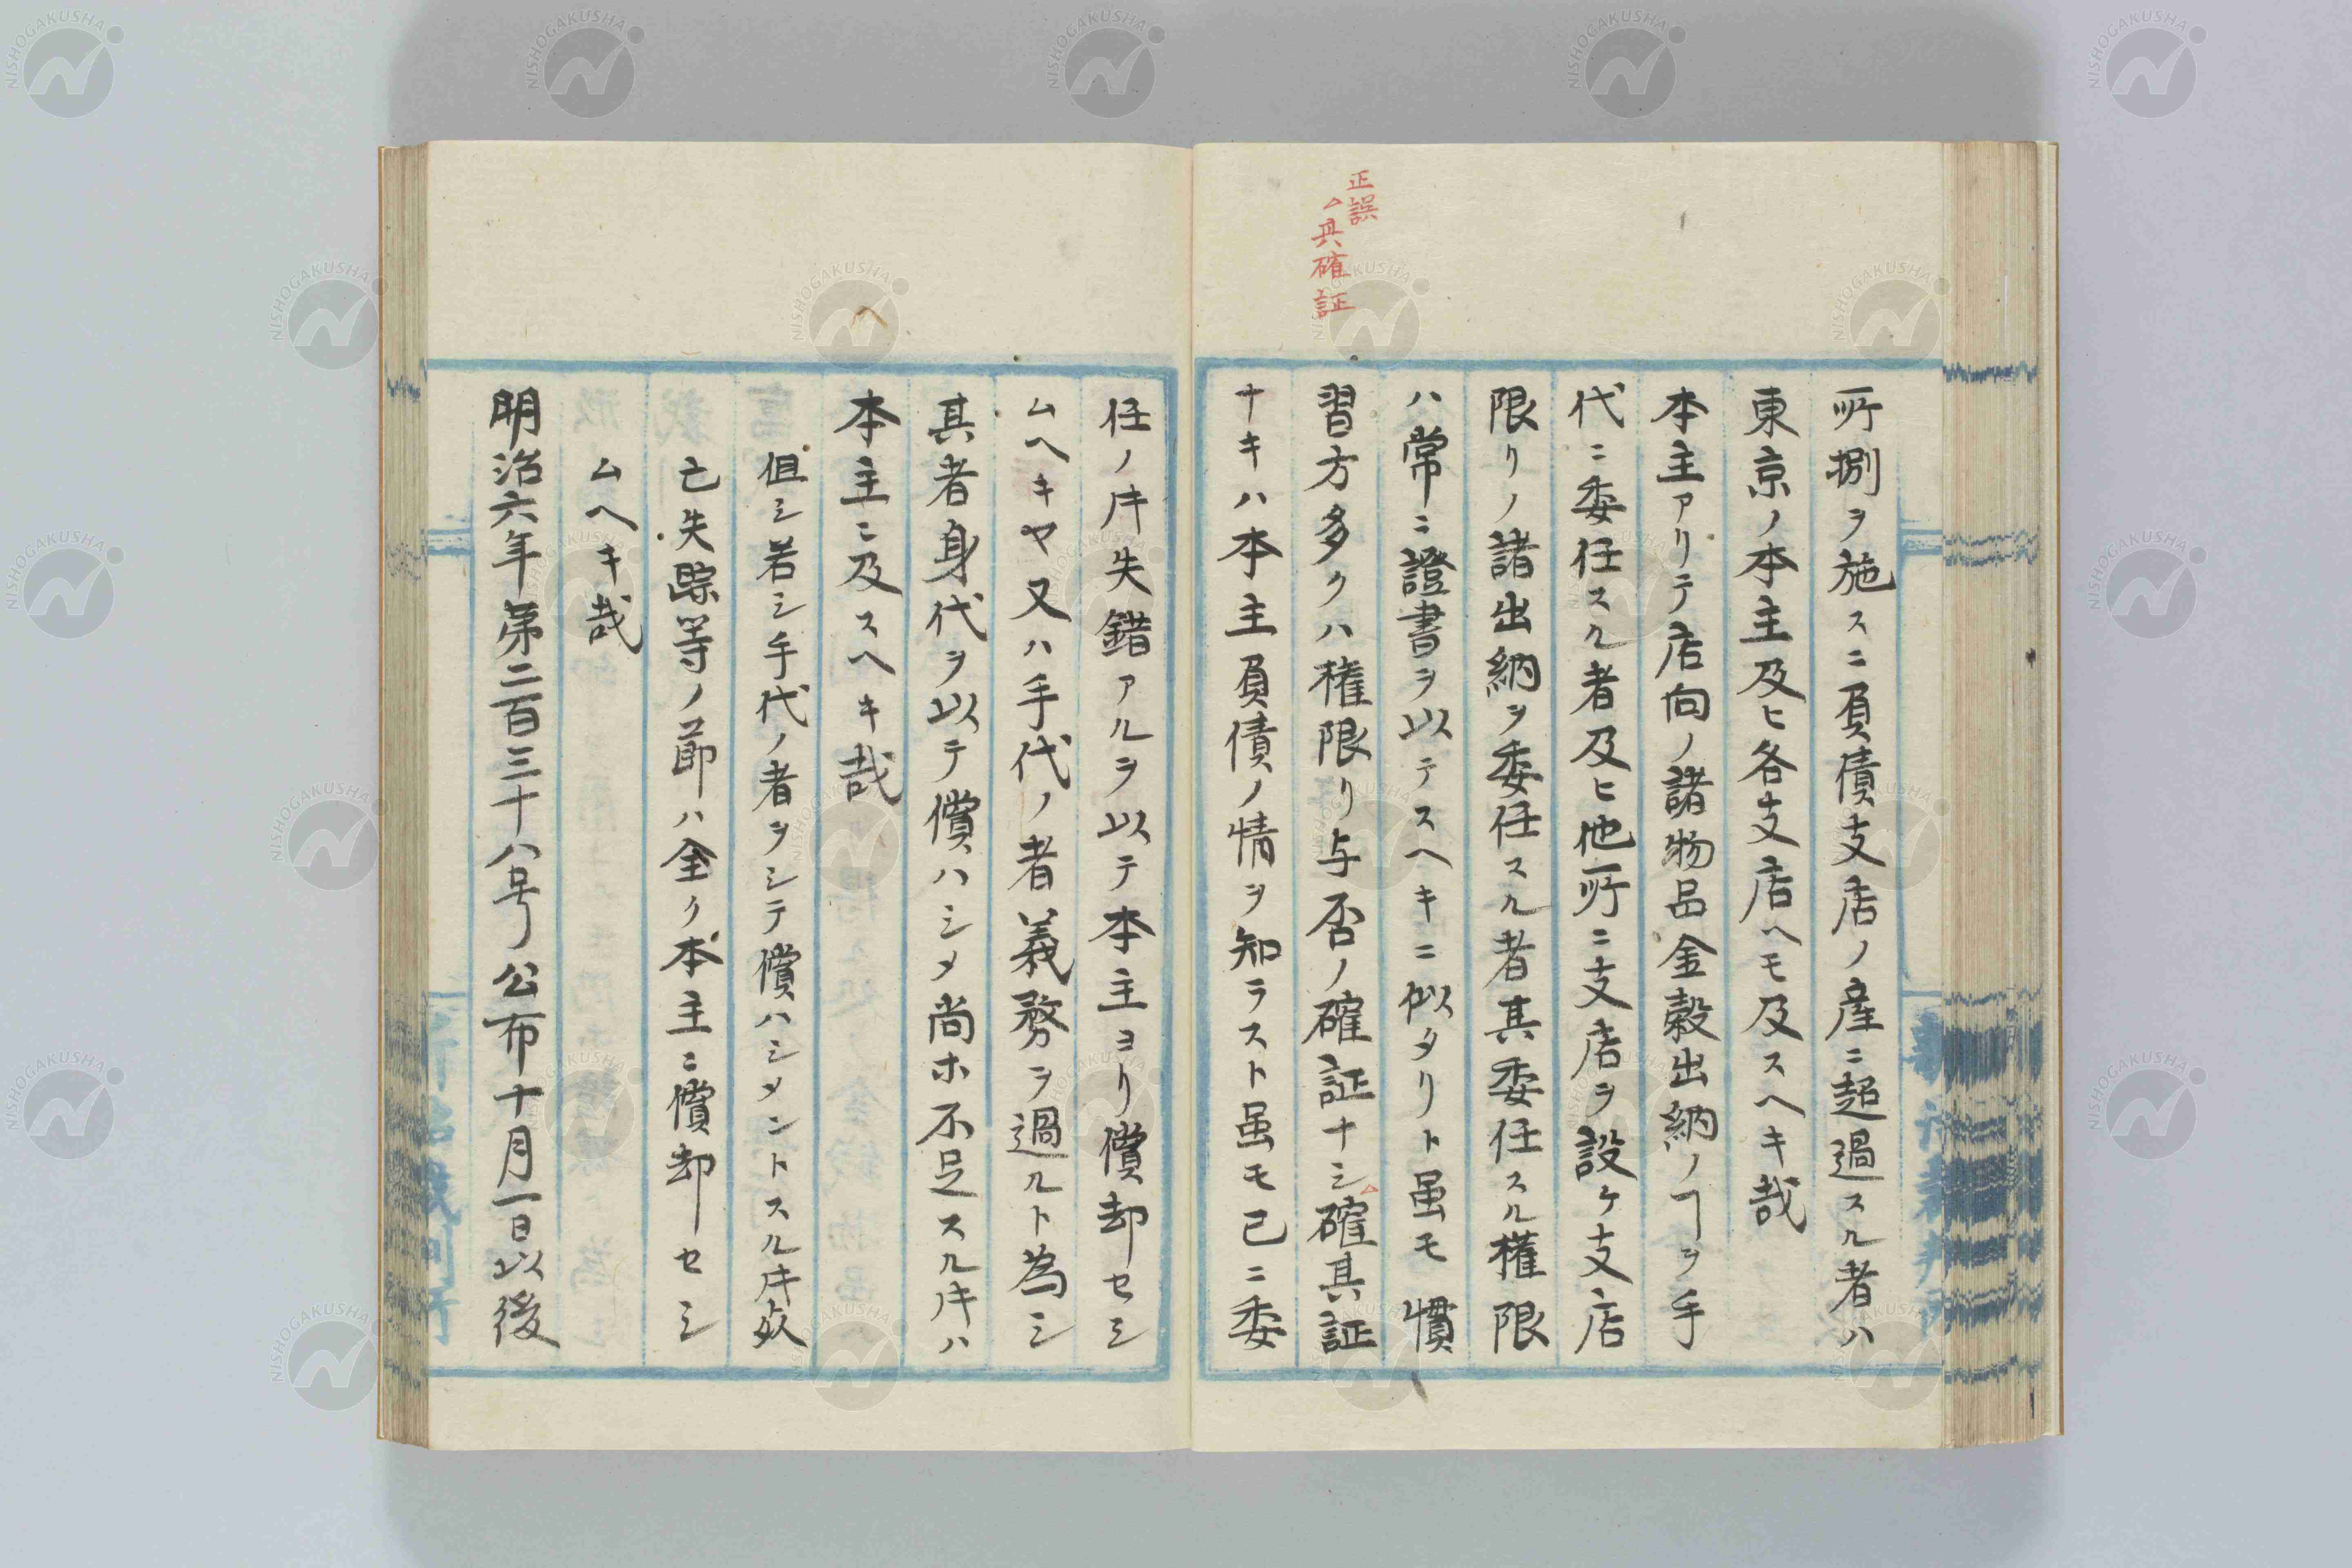 正誤
△其確証
所捌ヲ施スニ負債支店ノ産ニ超過スル者ハ
東京ノ本主及ヒ各支店ヘモ及スヘキ哉
本主アリテ店向ノ諸物品金穀出納ノヿヲ手
代ニ委任スル者及ヒ他所ニ支店ヲ設ケ支店
限リノ諸出納ヲ委任スル者其委任スル権限
ハ常ニ證書ヲ以テスヘキニ似タリト虽モ慣
習方多クハ権限リ与否ノ確証ナシ△確其証
ナキハ本主負債ノ情ヲ知ラスト虽モ已ニ委
任ノ𪜈失錯アルヲ以テ本主ヨリ償却セシ
ムヘキヤ又ハ手代ノ者義務ヲ過ルト為シ
其者身代ヲ以テ償ハシメ尚ホ不足スル𪜈ハ
本主ニ及スヘキ哉
但シ若シ手代ノ者ヲシテ償ハシメントスル𪜈死
亡失踪等ノ節ハ全ク本主ニ償却セシ
ムヘキ哉
明治六年第二百三十八号公布十月一日以後
NISHOGAKUSHA